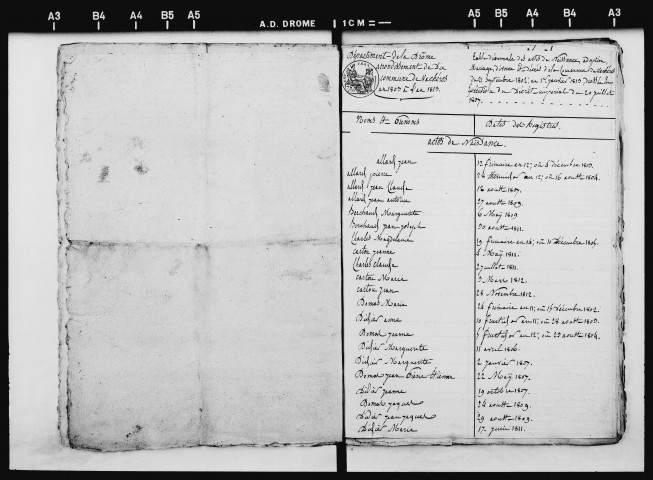 A3 B4 A4 B5 A5 A.D. DROME 1 CM A5 B5 A4 B4 A3
Département de la Drôme
arrondissement de Die
commune de
an 1803 à l'an 1813.
Table décennale des actes de Naissance,
Mariage, divorce et décès de la Commune de
1807.
Noms et Prénoms Dates des Registres.
actes de Naissance.
allard jean 12 frimaire an 12; ou 4 décembre 1803.
allard pierre 24 thermidor an 12; ou 16 aoutt 1804.
allard jean Claude 18 aoutt 1807.
allard jean antoine 27 aoutt 1809.
Marguerite 6 May 1809
jean joseph 30 aoutt 1811.
Charles Magdelaine 19 frimaire an 14; ou 11 décembre 1806.
caston jeanne 4 May 1811.
Charles Claude 2 juillet 1811.
caston Marie 3 Mars 1812.
caston jean 28 Novembre 1812.
Marie 24 frimaire an 11; ou 15 décembre 1802.
Didier anne 10 fructidor an 11; ou 28 aoutt 1803.
jeanne 5 fructidor an 12; ou 23 aoutt 1804.
Didier Marguerite 11 avril 1806.
Didier Marguerite 2 janvier 1807.
jean Pierre Etienne 22 May 1807.
Didier jeanne 19 octobre 1807.
jaques 24 aoutt 1809.
Didier jean jaques 29 aoutt 1809.
Didier Marie 17 juin 1811.